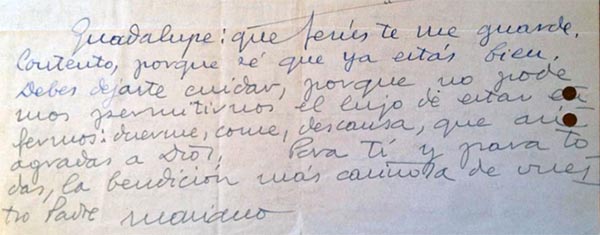 Guadalupe: que Jesús te me guarde.
Contento, porque sé que ya estás bien.
Debes dejarte cuidar, porque no pode
mos permitirnos el lujo de estar en
fermos: duerme, come, descansa, que así
agradas a Dios. Para ti y para to
das, la bendición más cariñosa de vues
tro Padre Mariano